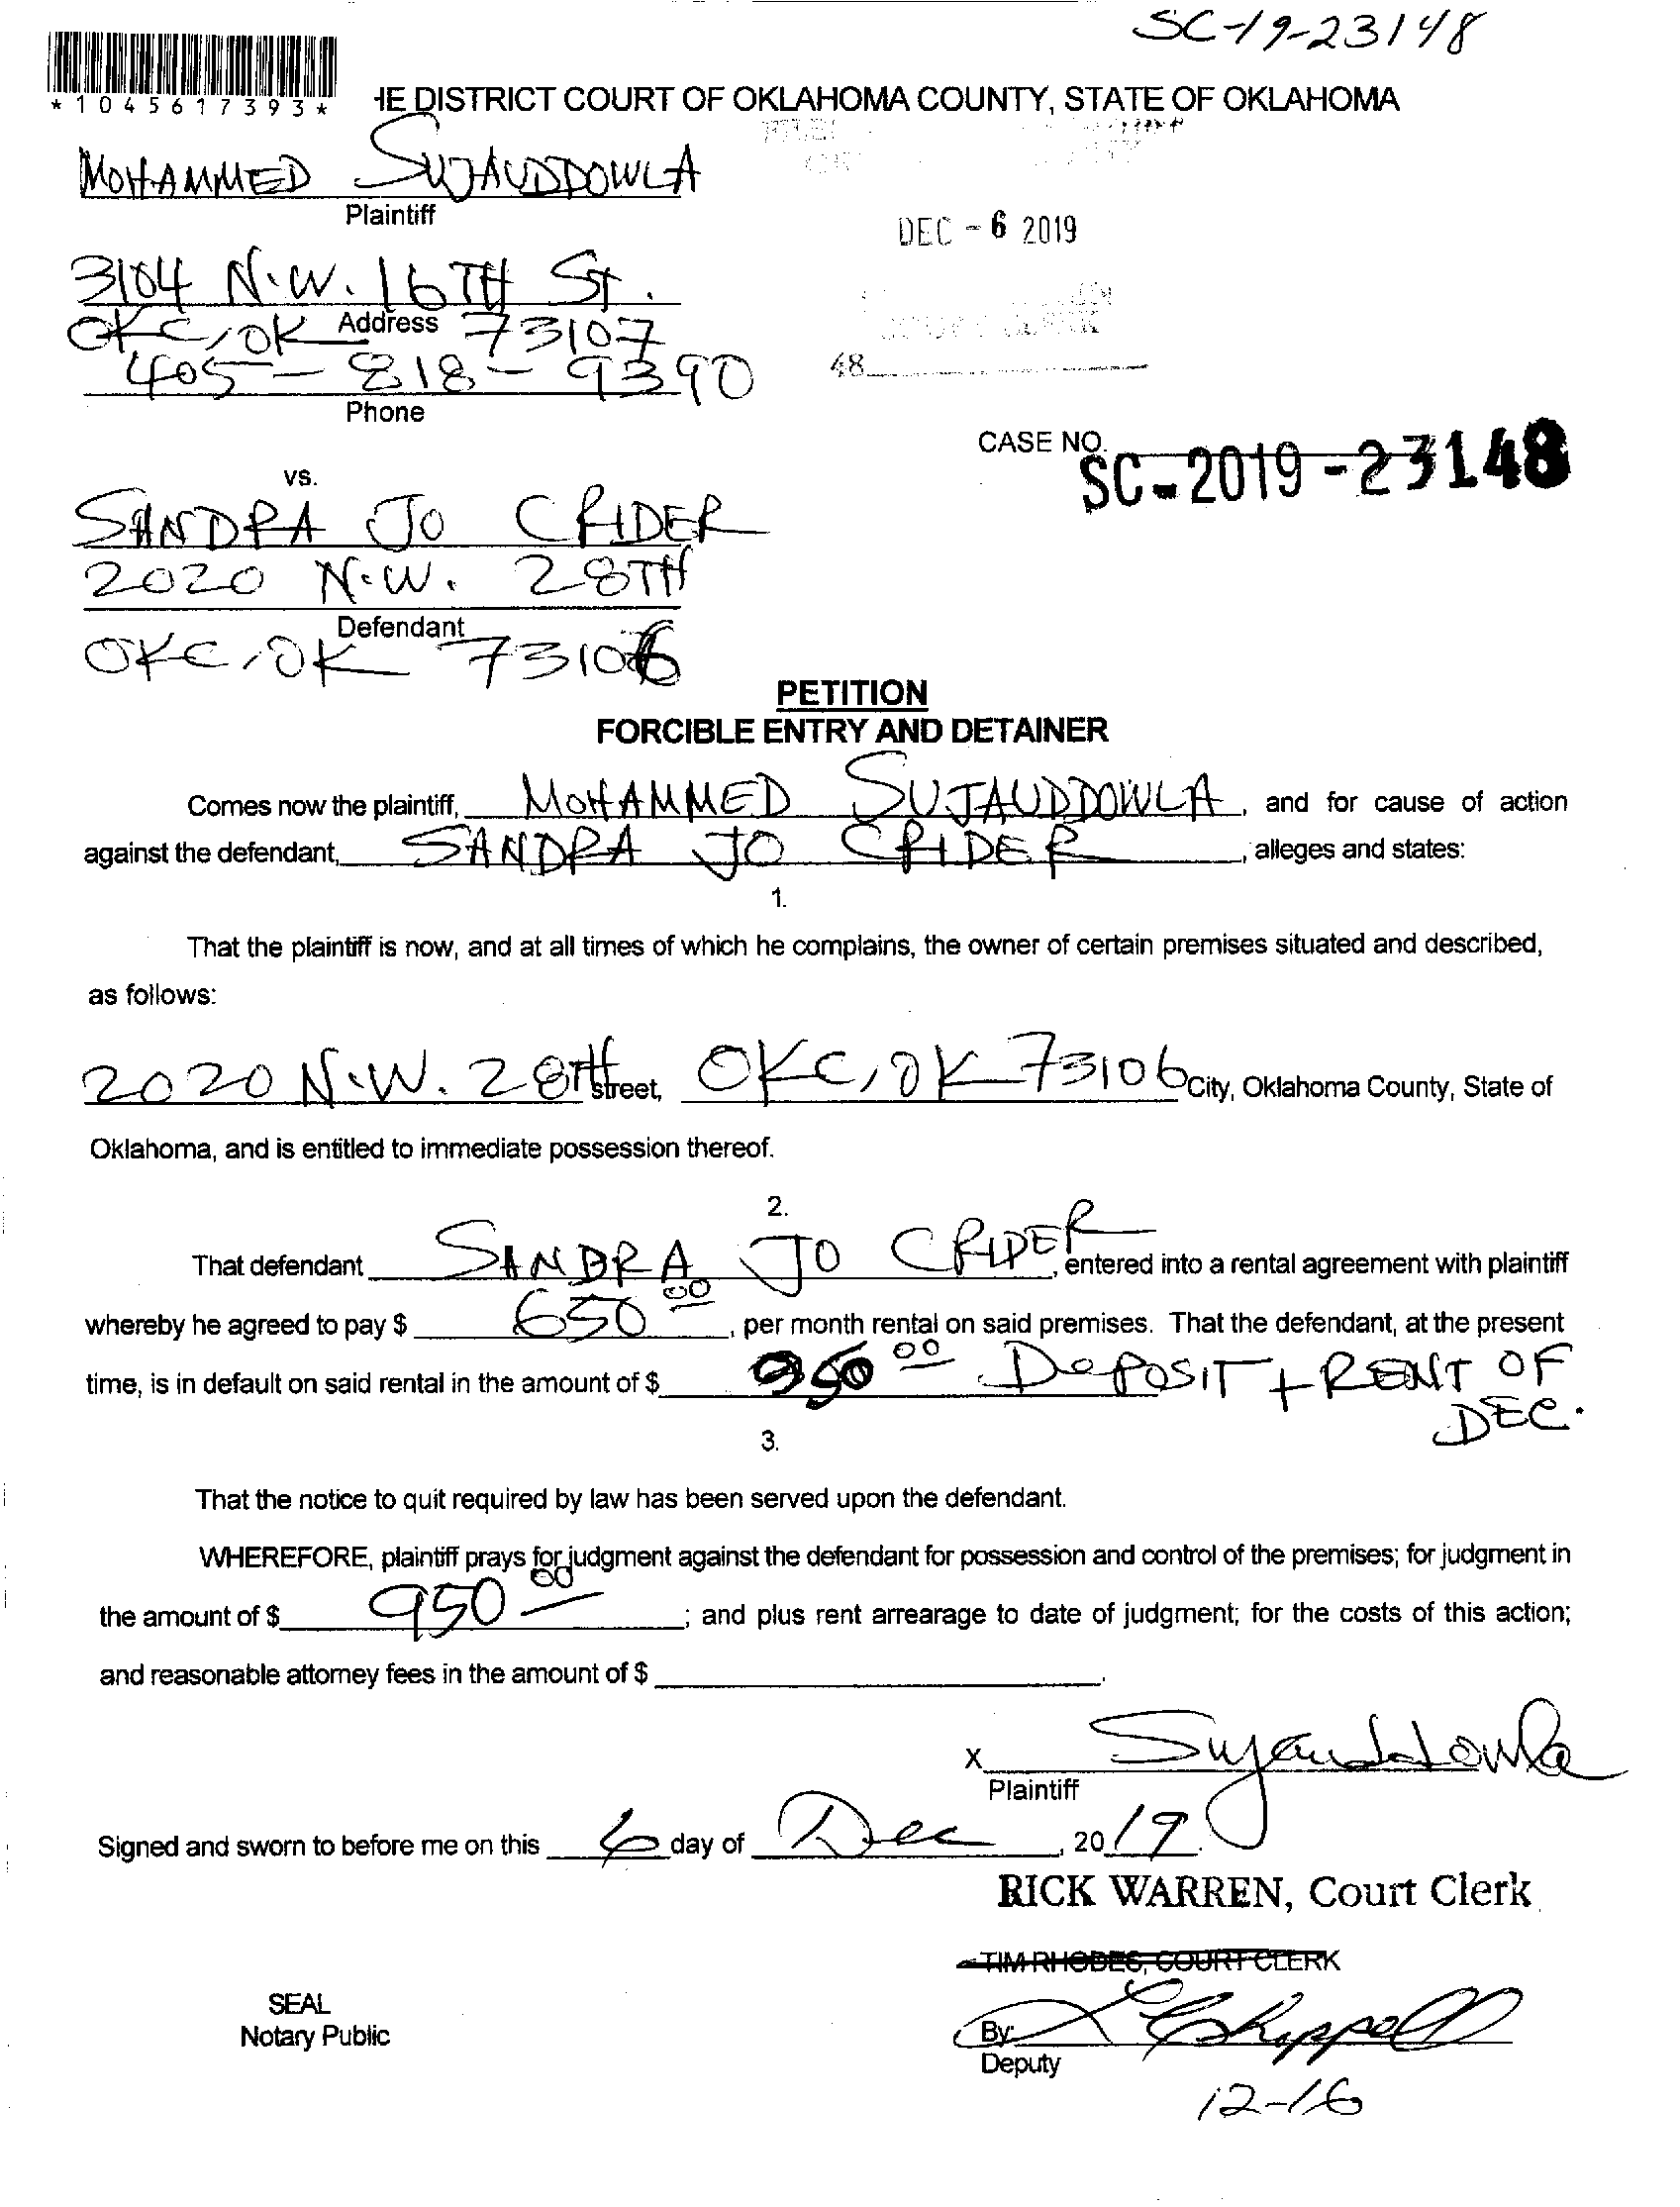 SC-19-23148
*1045617393*
HE DISTRICT COURT OF OKLAHOMA COUNTY, STATE OF OKLAHOMA
MOHAMMED SUJAUDDOWLA
Plaintiff
DEC - 6 2019
3104 N.W. 16TH ST.
Address
OKC, OK 73107
405-818-9390
Phone
48
CASE NO.
SC-2019-23148
vs.
SANDRA JO CRIDER
2020 N.W. 28TH
Defendant
OKC, OK 73106
PETITION
FORCIBLE ENTRY AND DETAINER
Comes now the plaintiff, MOHAMMED SUJAUDDOWLA, and for cause of action
against the defendant, SANDRA JO CRIDER, alleges and states:
1.
That the plaintiff is now, and at all times of which he complains, the owner of certain premises situated and described,
as follows:
2020 N.W. 28TH street, OKC, OK 73106 City, Oklahoma County, State of
Oklahoma, and is entitled to immediate possession thereof.
2.
That defendant SANDRA JO CRIDER, entered into a rental agreement with plaintiff
whereby he agreed to pay $ 650 00, per month rental on said premises. That the defendant, at the present
time, is in default on said rental in the amount of $ 950 00 DEPOSIT + RENT OF
DEC.
3.
That the notice to quit required by law has been served upon the defendant.
WHEREFORE, plaintiff prays for judgment against the defendant for possession and control of the premises; for judgment in
the amount of $ 950 00; and plus rent arrearage to date of judgment; for the costs of this action;
and reasonable attorney fees in the amount of $ .
X Sujauddowla
Plaintiff
Signed and sworn to before me on this 6 day of Dec, 2019.
RICK WARREN, Court Clerk
TIM RHODES, COURT CLERK
SEAL
Notary Public
By:
Deputy
12-16